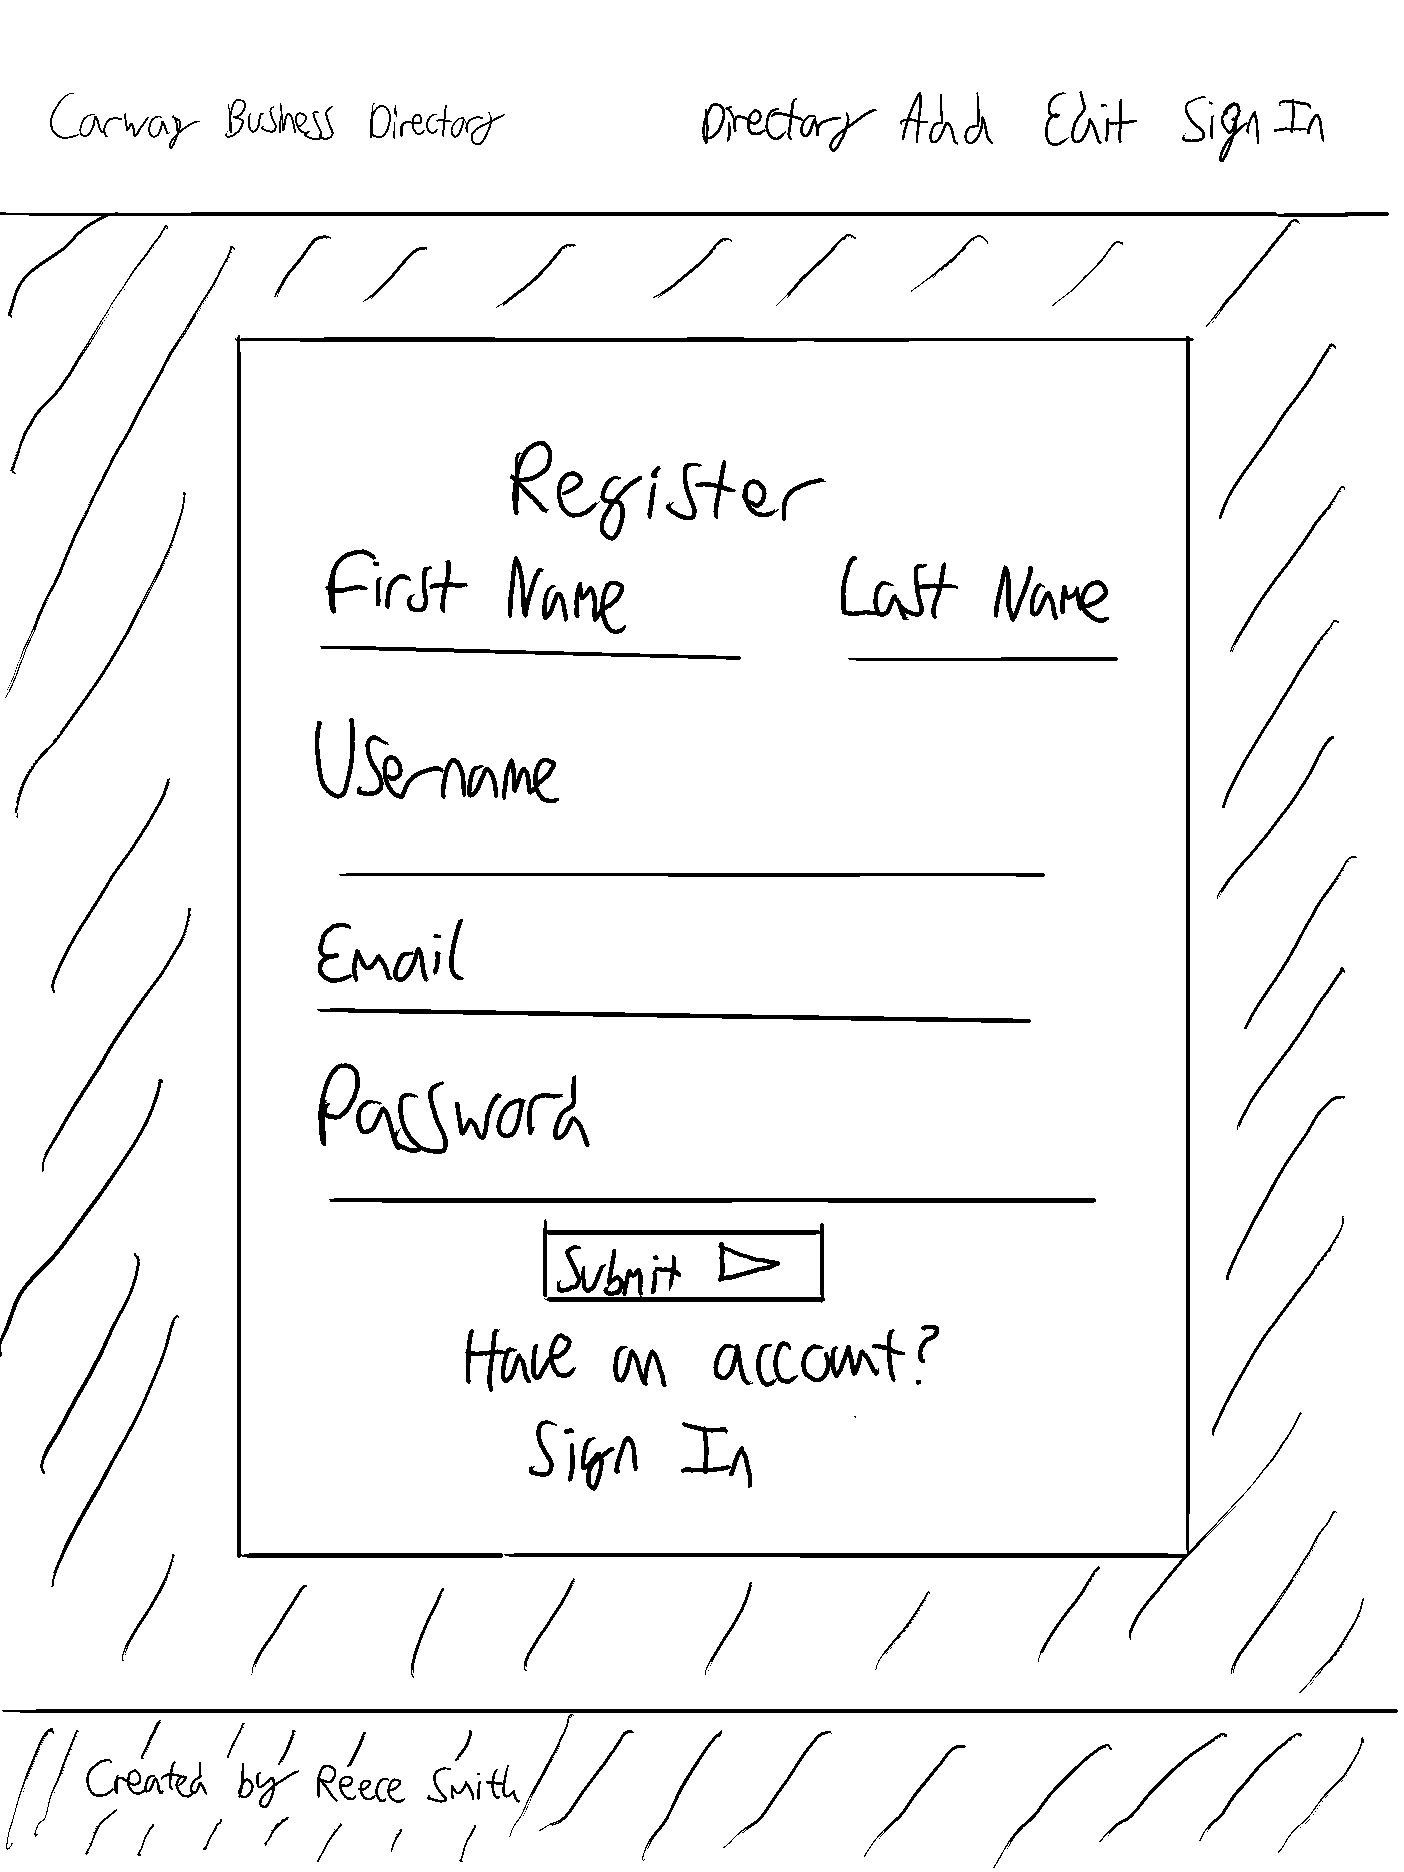 Carway Business Directory Directory Add Edit Sign In
Register
First Name Last Name
Username
Email
Password
Submit
Have an account?
Sign In
Created by Reece Smith